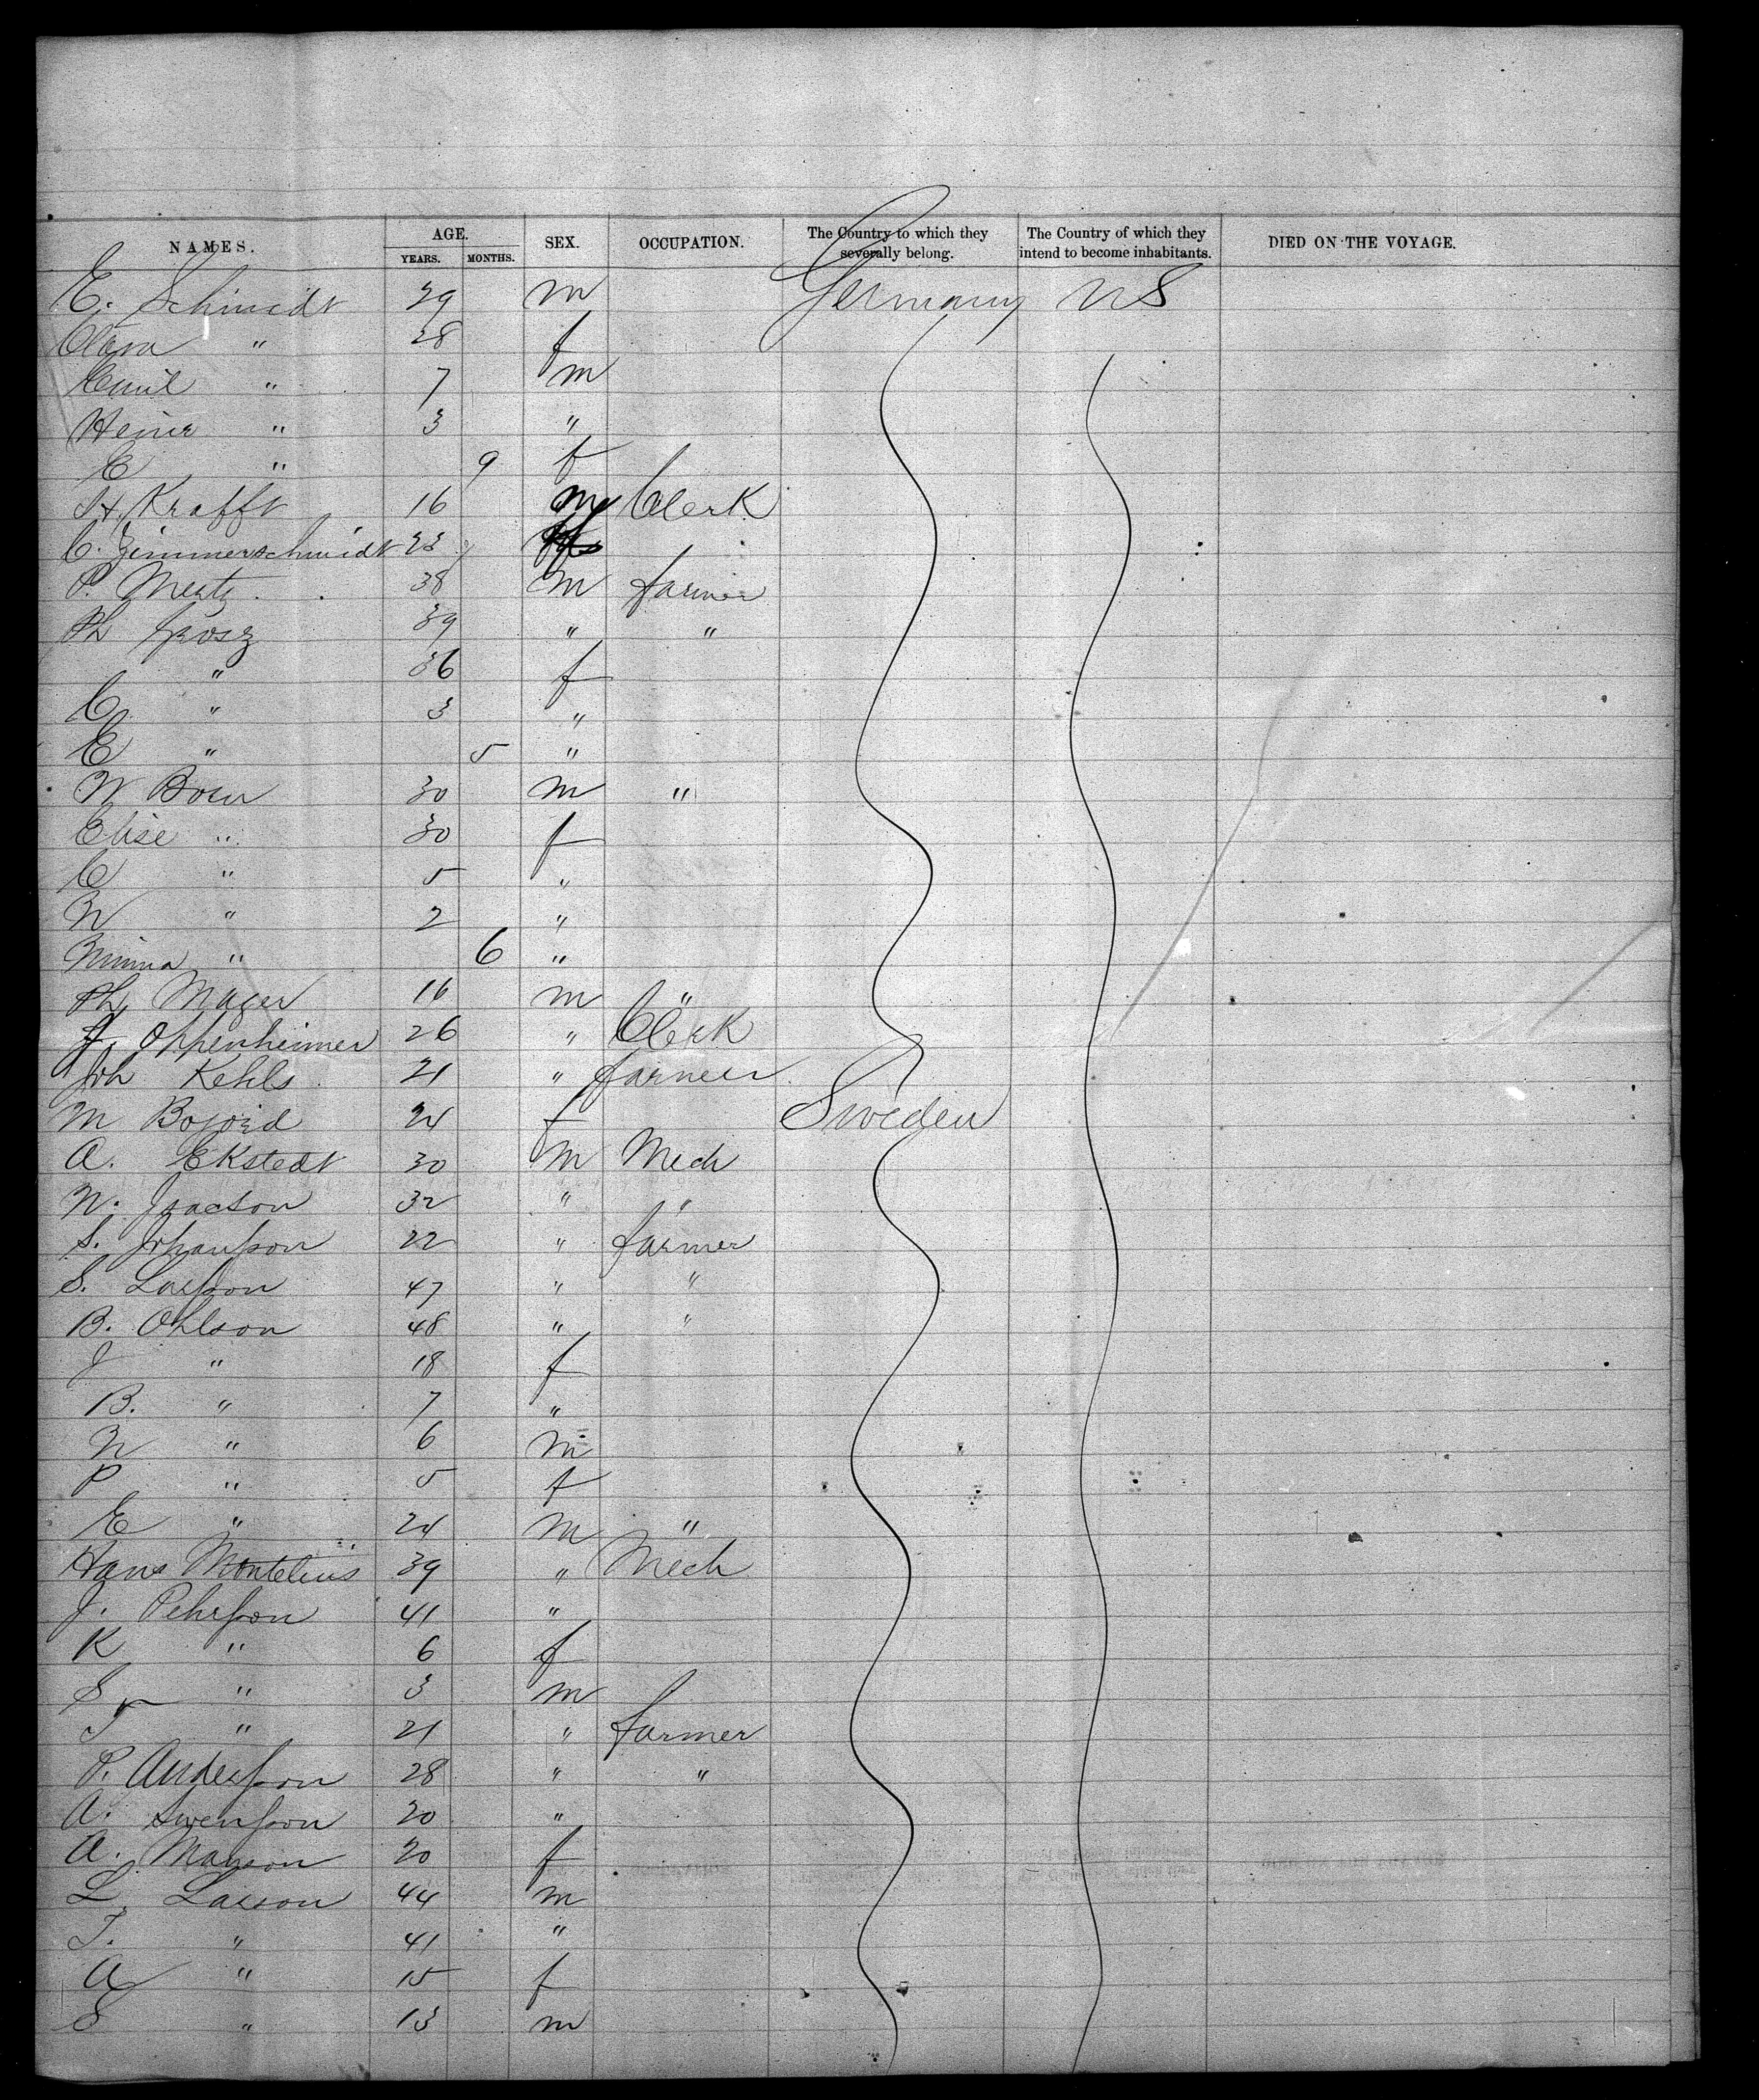 NAMES. AGE. YEARS. MONTHS. SEX. OCCUPATION. The Country to which they severally belong. The Country of which they intend to become inhabitants. DIED ON THE VOYAGE.
E. Schmidt 29 m Germany US
Clara " 28 f
Emil " 7 m
Heinr " 3 "
E " 9 f
H. Krafft 16 m Clerk
C. Zimmerschmidt 23 f
P. Mertz 38 m farmer
Ph Grosz 39 " "
" 36 f
C. " 3 "
E " 5 "
W Born 30 m "
Elise " 30 f
C " 5 "
W " 2 "
Minna " 6 "
Ph Mager 16 m "
J. Oppenheimer 26 " Clerk
Joh Kehls 21 " farmer
M 24 f Sweden
A. Ekstedt 30 m Mech
N. Isacson 32 " "
S. Johansson 22 " farmer
S. Larsson 47 " "
B. Ohlson 48 " "
J " 18 f
B. " 7 "
N " 6 m
P " 5 f
E " 24 m "
Hans Montelius 39 " Mech
J. Pehrsson 41 "
K " 6 f
S " 3 m
T " 21 " farmer
P. Andersson 28 " "
A. Swensson 20 "
A. Manson 20 f
L. Larson 44 m
T. " 41 "
A " 15 f
S " 13 m